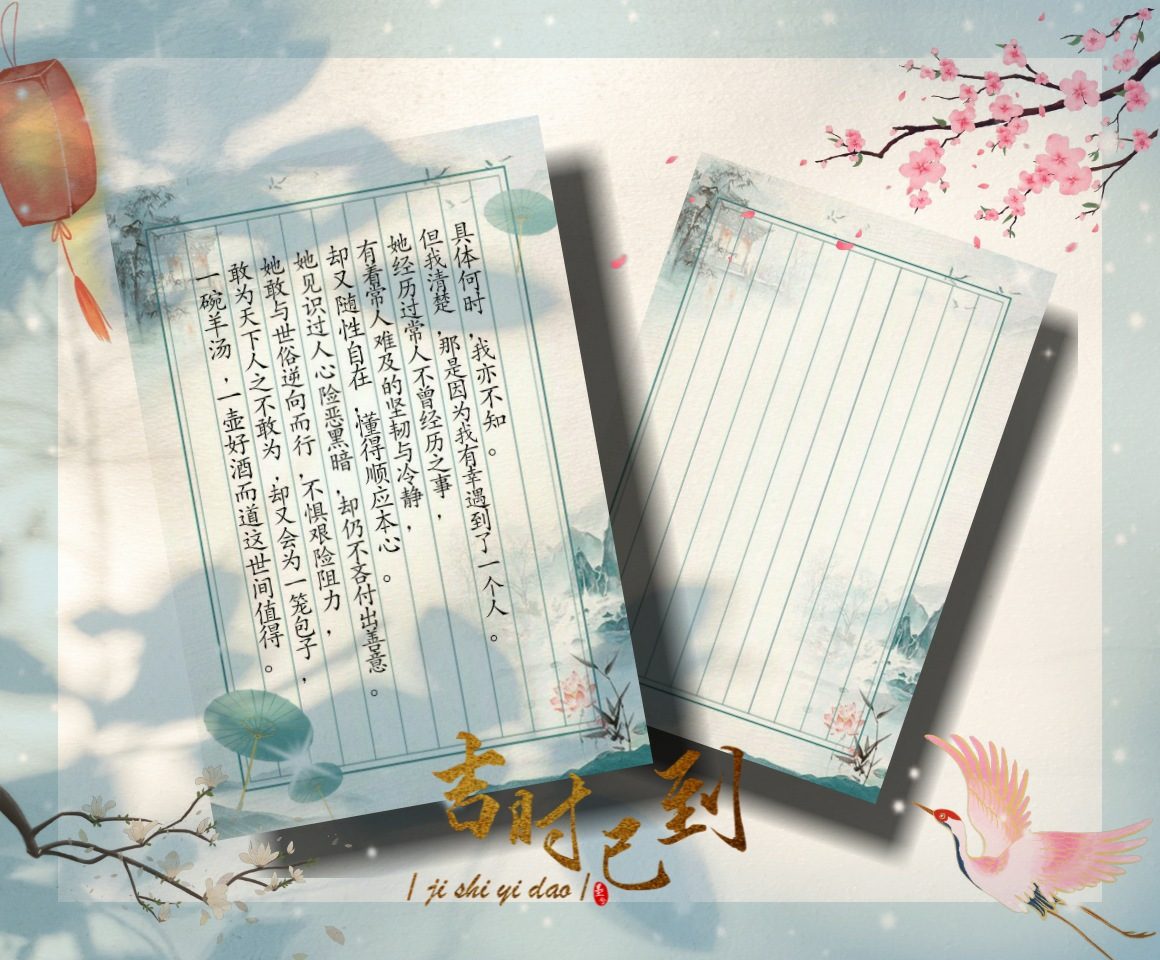 具体何时,我亦不知。
但我清楚,那是因为我有幸遇到了一个人。
她经历过常人不曾经历之事,
有着常人难及的坚韧与冷静,
却又随性自在,懂得顺应本心。
她见识过人心险恶黑暗,却仍不吝付出善意。
她敢与世俗逆向而行,不惧艰险阻力,
敢为天下人之不敢为,却又会为一笼包子,
一碗羊汤,一壶好酒而道这世间值得。
吉时已到
| ji shi yi dao |